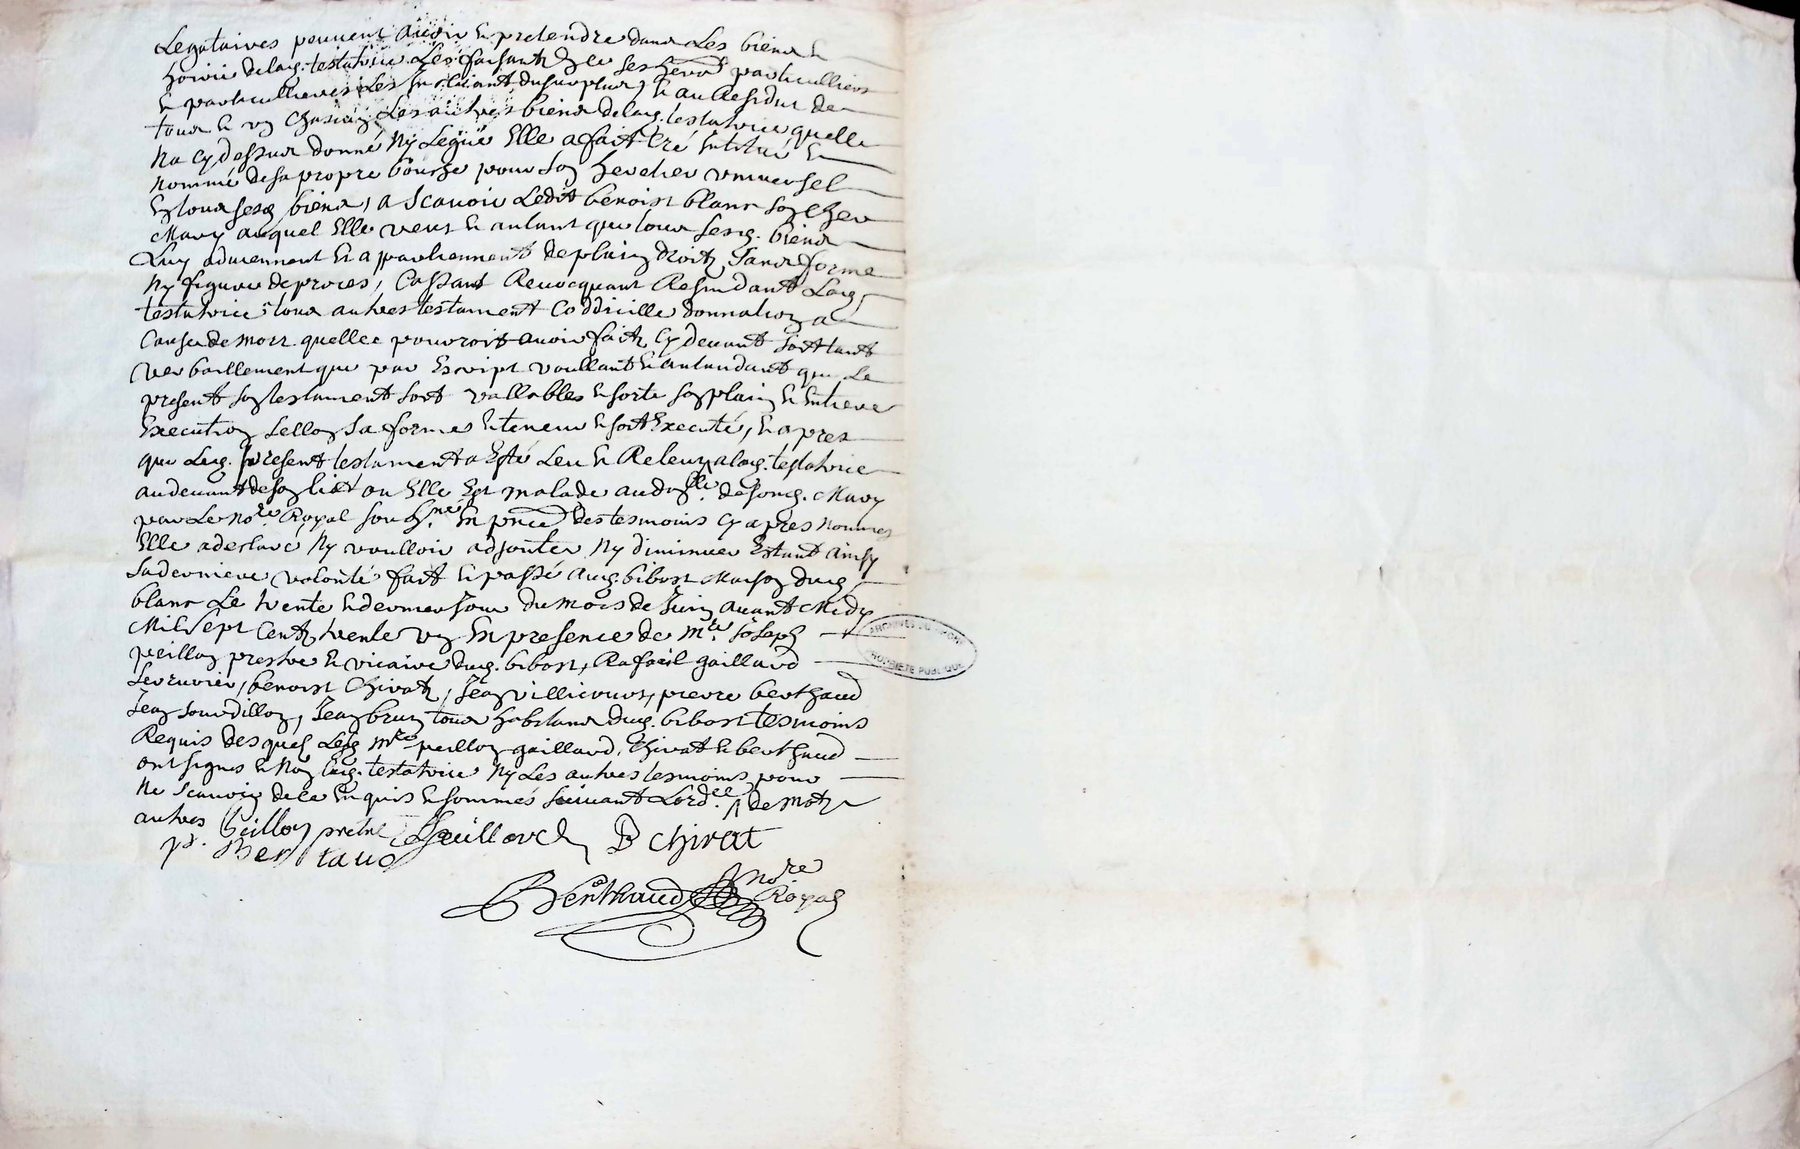 Legataires peuvent avoir & pretendre dans Les biens &
hoirie delad. testatrice Les faisant de ce ses herers particulliers
& particullieres Les instituant, du surplus, & au Residut de
tous & un chascun Les autres biens delad. testatrice quelle
Na cy dessus donné Ny Legüé Elle a fait Creé institué &
nommé de sa propre bouche pour son heretier universel
En tous sesd. biens, a scavoir Ledit benoist blanc son cher
Mary auquel Elle veut & antant que tous sesd. biens
Luy adviennent & appartiennent de plain droit, sans forme
Ny figure de proces, Cassant Revocquant Rescindant Lad.
testatrice tous autres testament Coddicille donnation a
Cause de mort quelle pouvroit avoir fait Cy devant soit tant
verballement que par Escript voullant & antandant que Le
present son testament soit vallables & sorte son plain & Entiere
Execution sellon sa forme & teneur & soit Executé, & apres
que Led. present testament a Esté Leu & Releu a lad. testatrice
au devant de son lict ou Elle Est malade au domlle. de sond. Mary
par Le nore. Royal soubne. En pnce des tesmoins cy apres nommes
Elle a declaré Ny voulloir adjouter Ny diminuer Estant ainsy
sa derniere volonté fait & passé aud. bibost Maison dud.
blanc Le trente & dernier jour du mois de Juin avant Midy
Mil sept Cent trente un En presence de mre. Joseph
peillon prestre & vicaire dud. bibost, Rafaël gaillard
serrurier, benoist Chirat, Jean villicours, pierre berthaud
Jean Jourdillon, Jean brun tous habitans dud. bibost tesmoins
Requis des quels Lesd. mre peillon gaillard, Chirat & berthaud
ont signes & Non Lad. testatrice Ny Les autres tesmoins pour
Ne scavoir de ce Enquis & sommés suivant Lordce. de mots
autres Peillon pretre Gaillard B chirat
pr. Bertaud
Berthaud nore
Royal
ARCHIVES DU RHONE
PROPRIETE PUBLIQUE